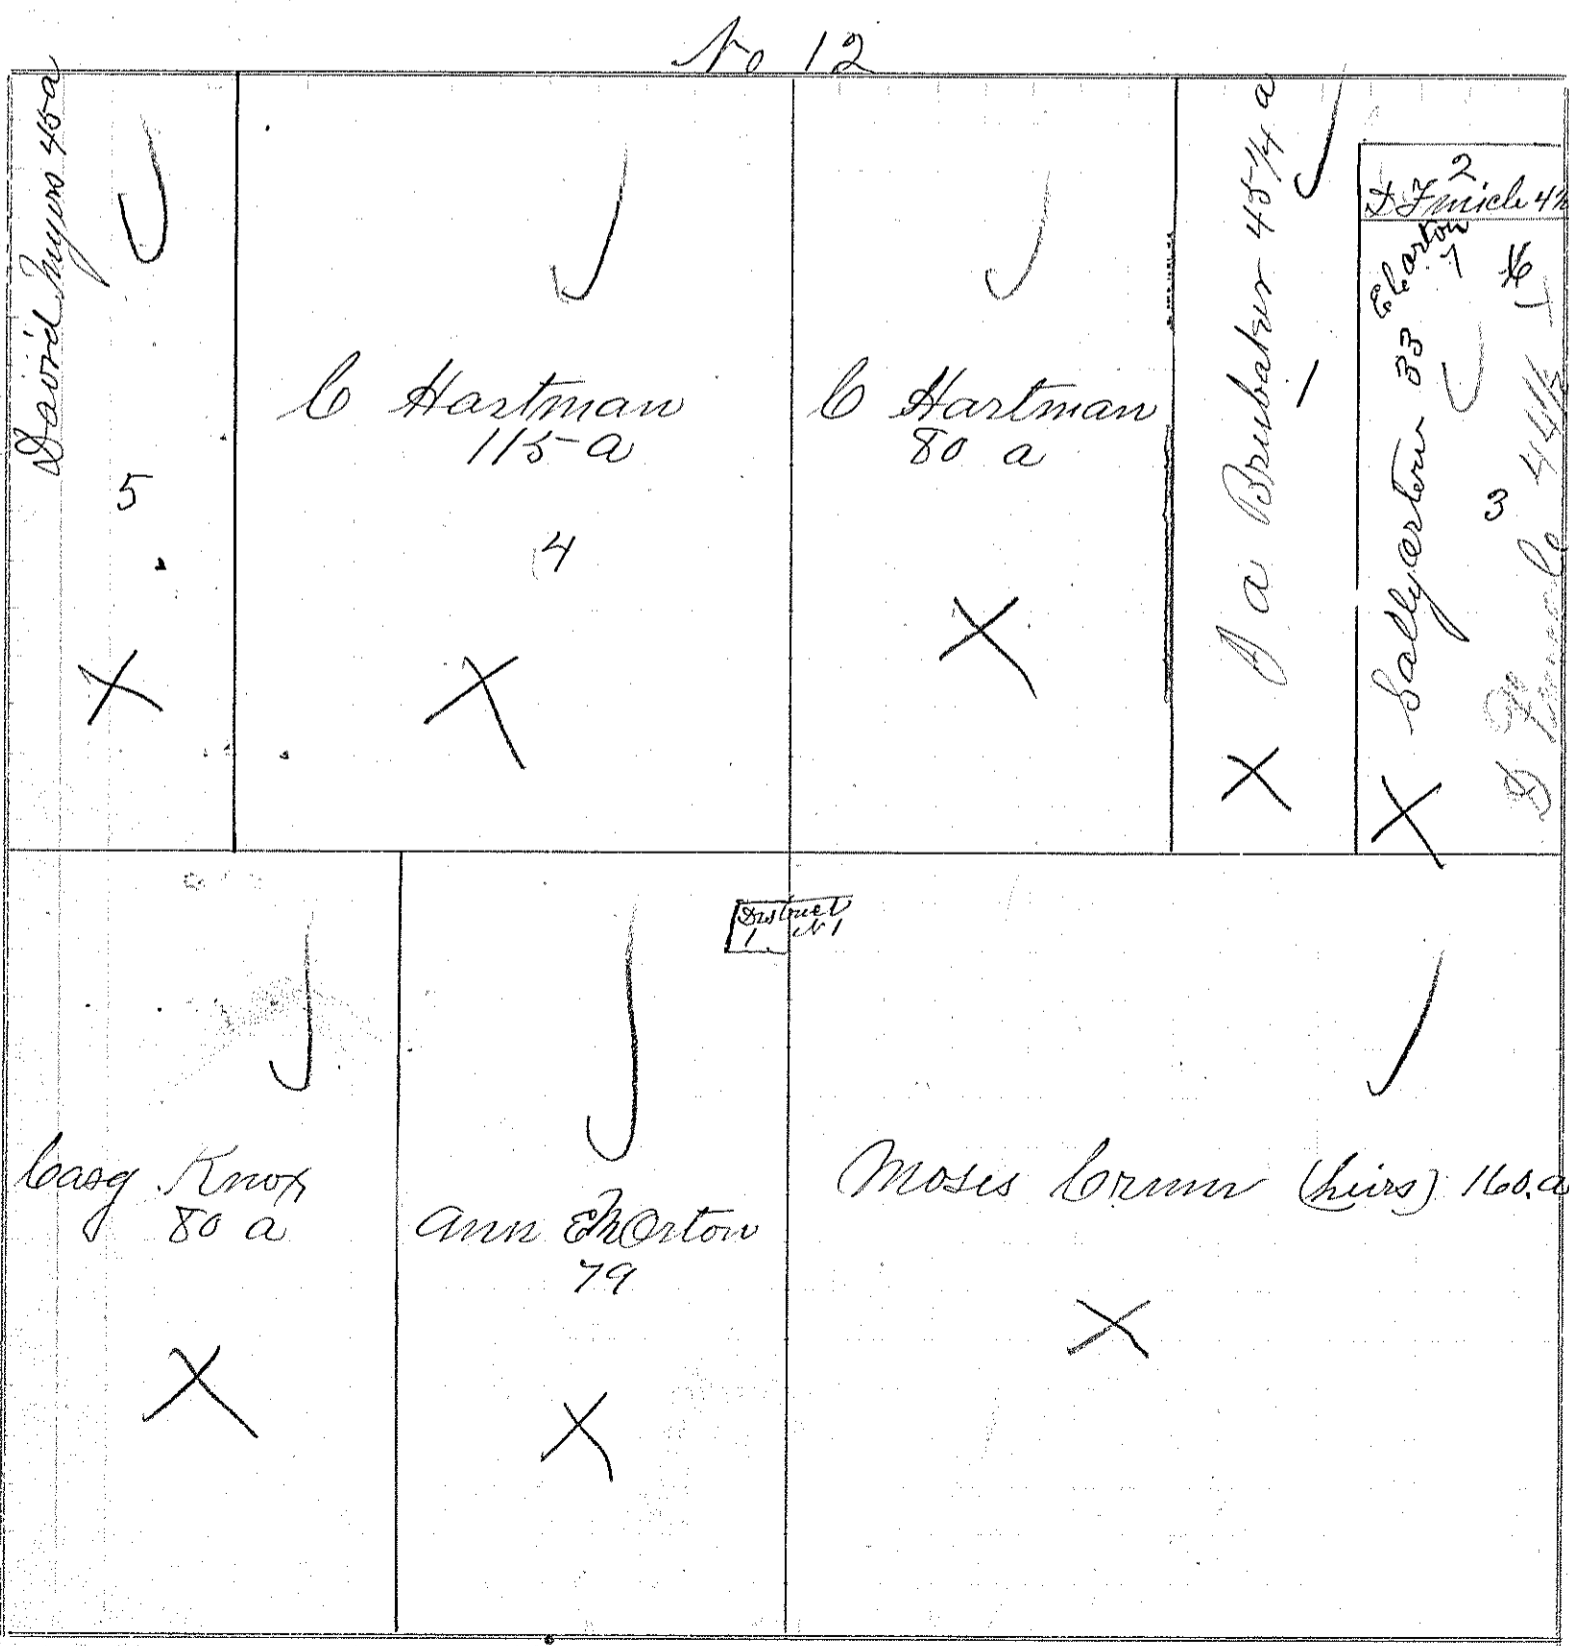 No 12
David Myers 45a
5
C Hartman
115 a
4
C Hartman
80 a
J a Brubaker 45 1/4 a
2
Sally arten 33
7
3
44 1/2
District
1 N 1
Casy Knox
80 a
Ann E M Orton
79
Moses Crum (heirs) 160.a